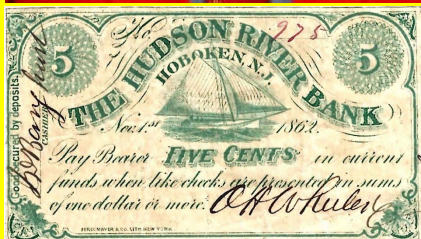 No. 975
5 THE HUDSON RIVER BANK 5
HOBOKEN, N.J.
Nov. 1st 1862.
Pay Bearer FIVE CENTS in current
funds when like checks are presented in sums
of one dollar or more.
Good secured by deposits.
CASHIER
FERD. MAYER & CO. LITH. NEW YORK.